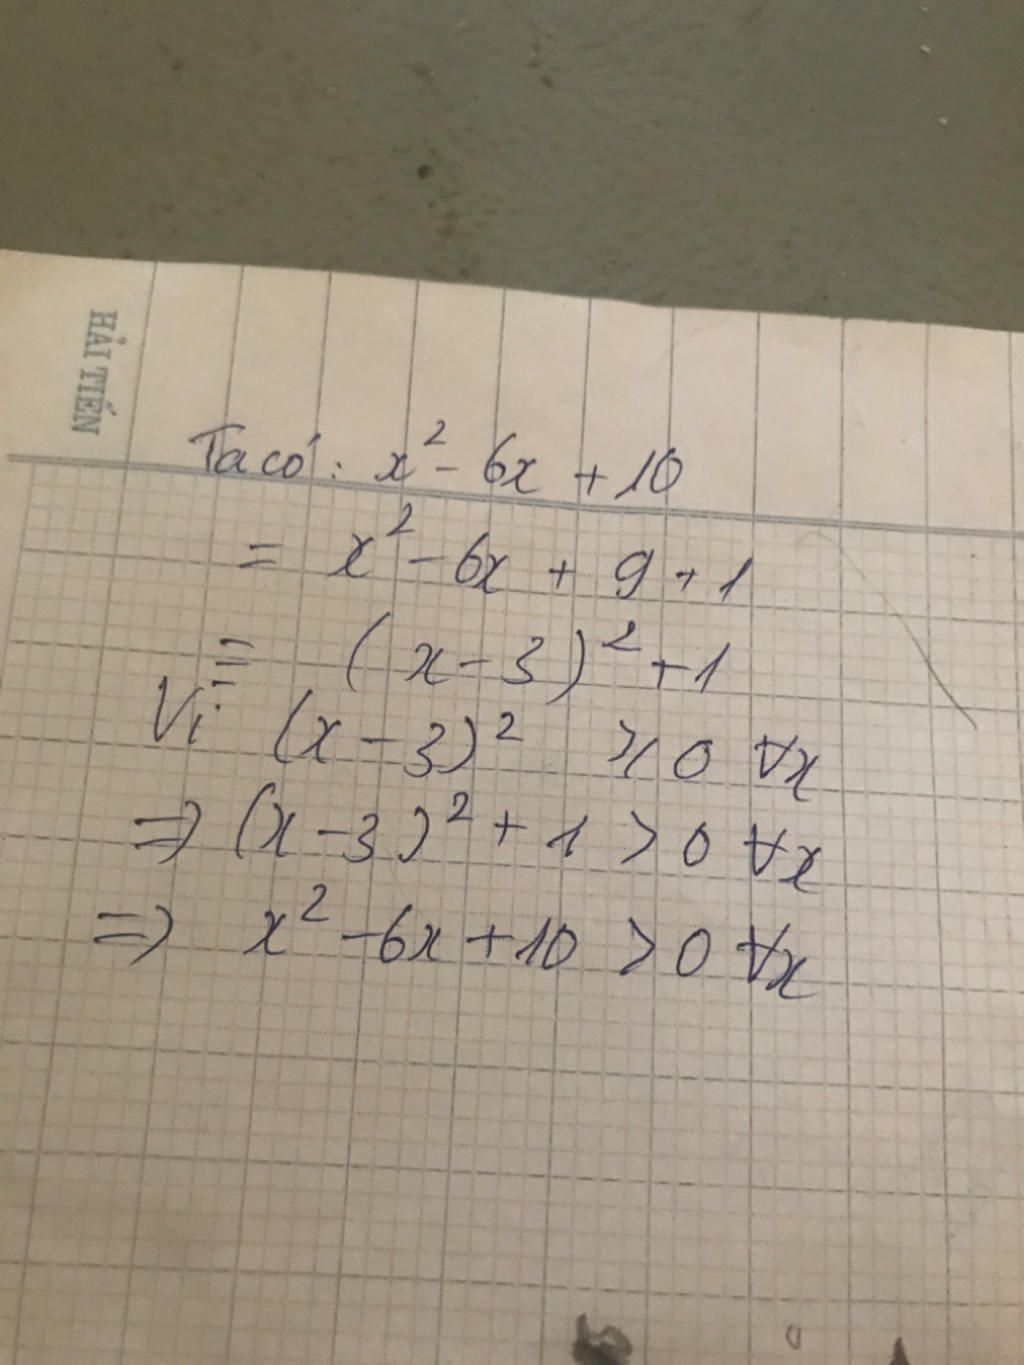 HẢI TIẾN
Ta có: x² - 6x + 10
= x² - 6x + 9 + 1
= (x - 3)² + 1
Vì (x - 3)² ≥ 0 ∀x
=> (x - 3)² + 1 > 0 ∀x
=> x² - 6x + 10 > 0 ∀x